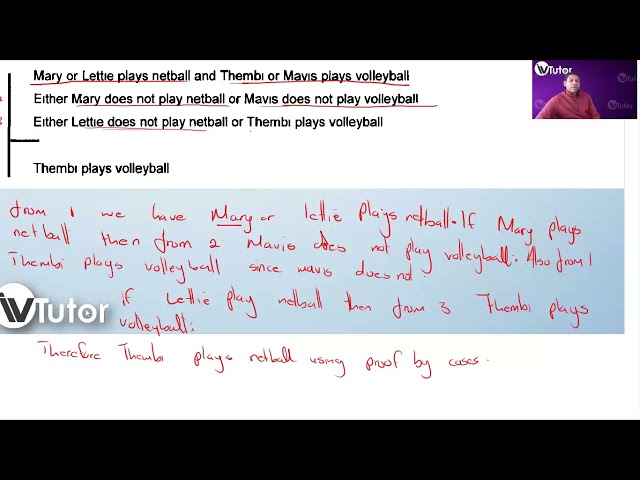 Mary or Lettie plays netball and Thembi or Mavis plays volleyball
WTutor
Either Mary does not play netball or Mavis does not play volleyball
Either Lettie does not play netball or Thembi plays volleyball
Thembi plays volleyball
from 1 we have Mary or lettie plays netball. If Mary plays
netball then from 2 Mavis does not play volleyball. Also from 1
Thembi plays volleyball since mavis does not.
if Lettie play netball then from 3 Thembi plays
WTutor
volleyball.
Therefore Thembi plays netball using proof by cases.